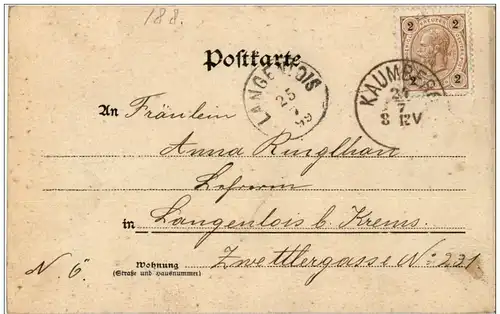 188.
2 2
2 2
Postkarte
LANGENLOIS
25
7
99
KAUMBERG
24
7
8 12V
An Fräulein
Anna Ringlhan
Lehrerin
in Langenlois b. Krems.
Zwettlergasse No 231
N. Ö.
Wohnung
(Straße und Hausnummer)